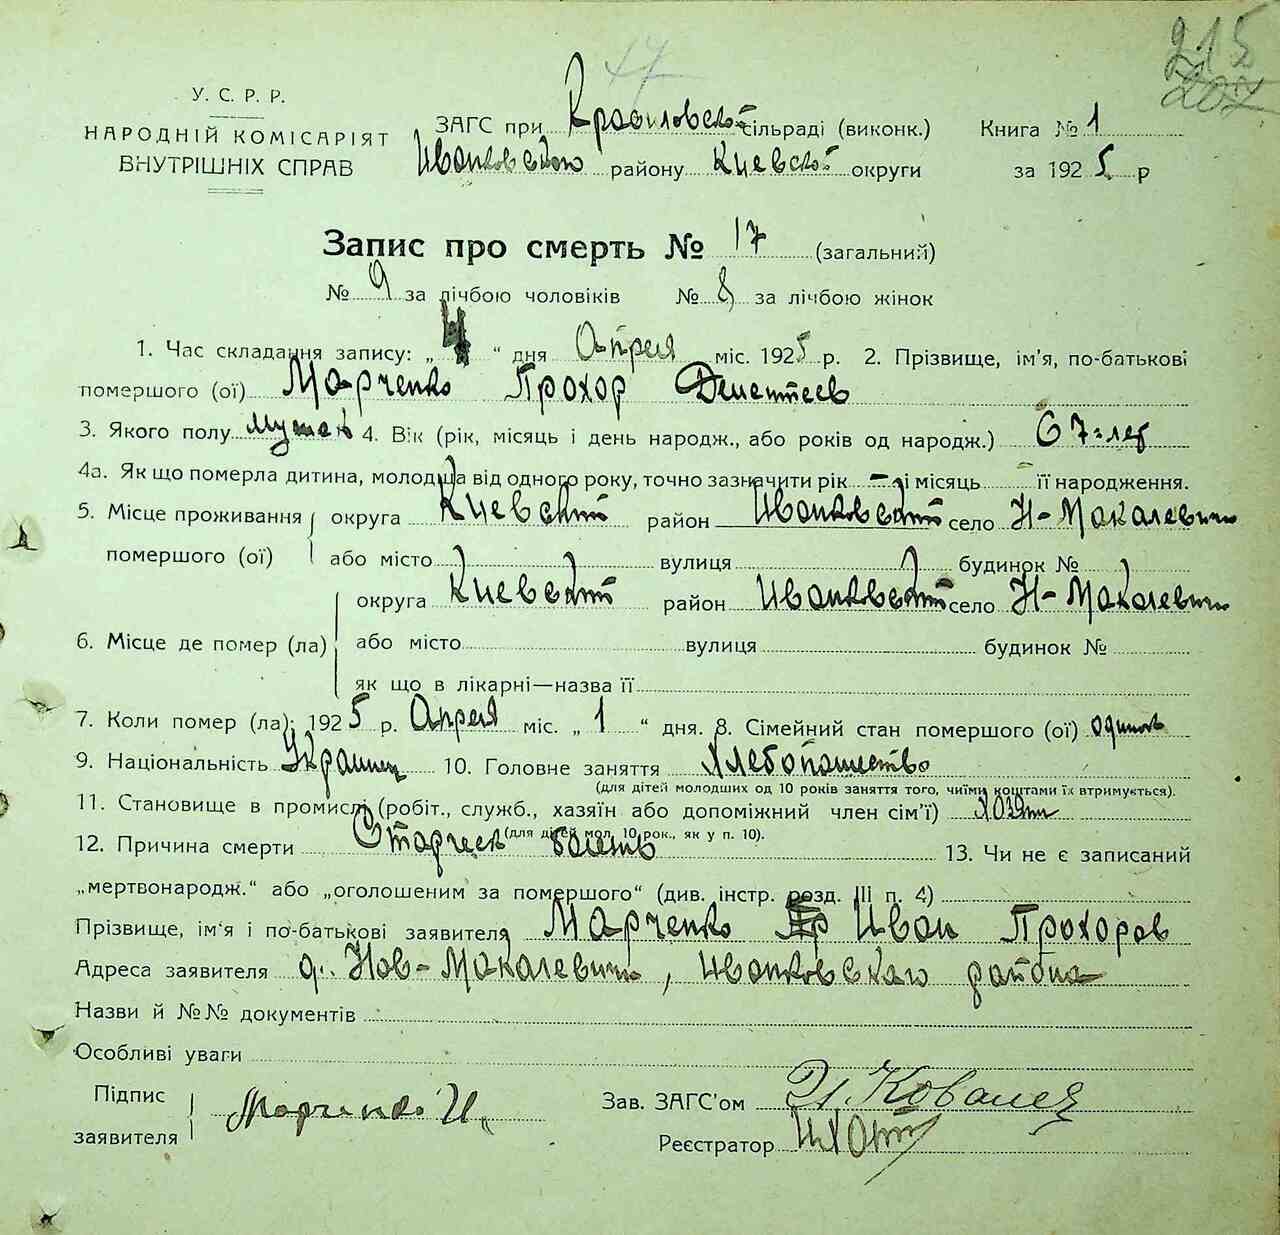 17
215
207
У. С. Р. Р.
НАРОДНІЙ КОМІСАРІЯТ
ВНУТРІШНІХ СПРАВ
ЗАГС при Красиловской сільраді (виконк.)
Иванковского району Киевской округи
Книга № 1
за 1925 р
Запис про смерть № 17 (загальний)
№ 9 за лічбою чоловіків № 8 за лічбою жінок
1. Час складання запису: „ 4 “ дня Апреля міс. 1925 р. 2. Прізвище, ім'я, по-батькові
помершого (ої) Марченко Прохор Дементеев
3. Якого полу мужск 4. Вік (рік, місяць і день народж., або років од народж.) 67 лет
4а. Як що померла дитина, молодша від одного року, точно зазначити рік — і місяць її народження.
5. Місце проживання округа Киевской район Иванковской село Н-Макалевичи
помершого (ої) або місто вулиця будинок №
округа Киевской район Иванковской село Н-Макалевичи
6. Місце де помер (ла) або місто вулиця будинок №
як що в лікарні—назва її
7. Коли помер (ла): 1925 р. Апреля міс. „ 1 “ дня. 8. Сімейний стан помершого (ої)
9. Національність Украинец 10. Головне заняття Хлебопашество
(для дітей молодших од 10 років заняття того, чиїми коштами їх втримується).
11. Становище в промислі (робіт., служб., хазяїн або допоміжний член сім'ї)
(для дітей мол. 10 рок., як у п. 10).
12. Причина смерти Старческ болезнь 13. Чи не є записаний
„мертвонародж.“ або „оголошеним за помершого“ (див. інстр. розд. III п. 4)
Прізвище, ім'я і по-батькові заявителя Марченко Иван Прохоров
Адреса заявителя д. Нов-Макалевичи, Иванковскаго района
Назви й №№ документів
Особливі уваги
Підпис
заявителя Марченко И.
Зав. ЗАГС'ом
Реєстратор